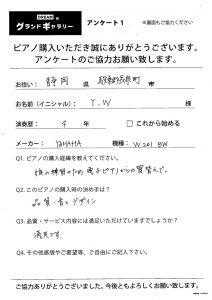 グランドギャラリー アンケート1 ※裏面もご協力ください
ピアノ購入いただき誠にありがとうございます。
アンケートのご協力お願い致します。
お住い: 静岡 県
お名前(イニシャル): Y.W 様
演奏歴: 4 年 □ これから始める
メーカー: YAMAHA 機種: W201 BW
Q1. ピアノの購入経緯を教えてください。
電子ピアノからの買替えで。
Q2. このピアノの購入時の決め手は?
品質・音とデザイン
Q3. 品質・サービス内容には満足いただけていますでしょうか?
満足です。
Q4. その他感想やご要望等、ご自由にご記入下さい。
ご協力ありがとうございました。今後ともよろしくお願い致します。